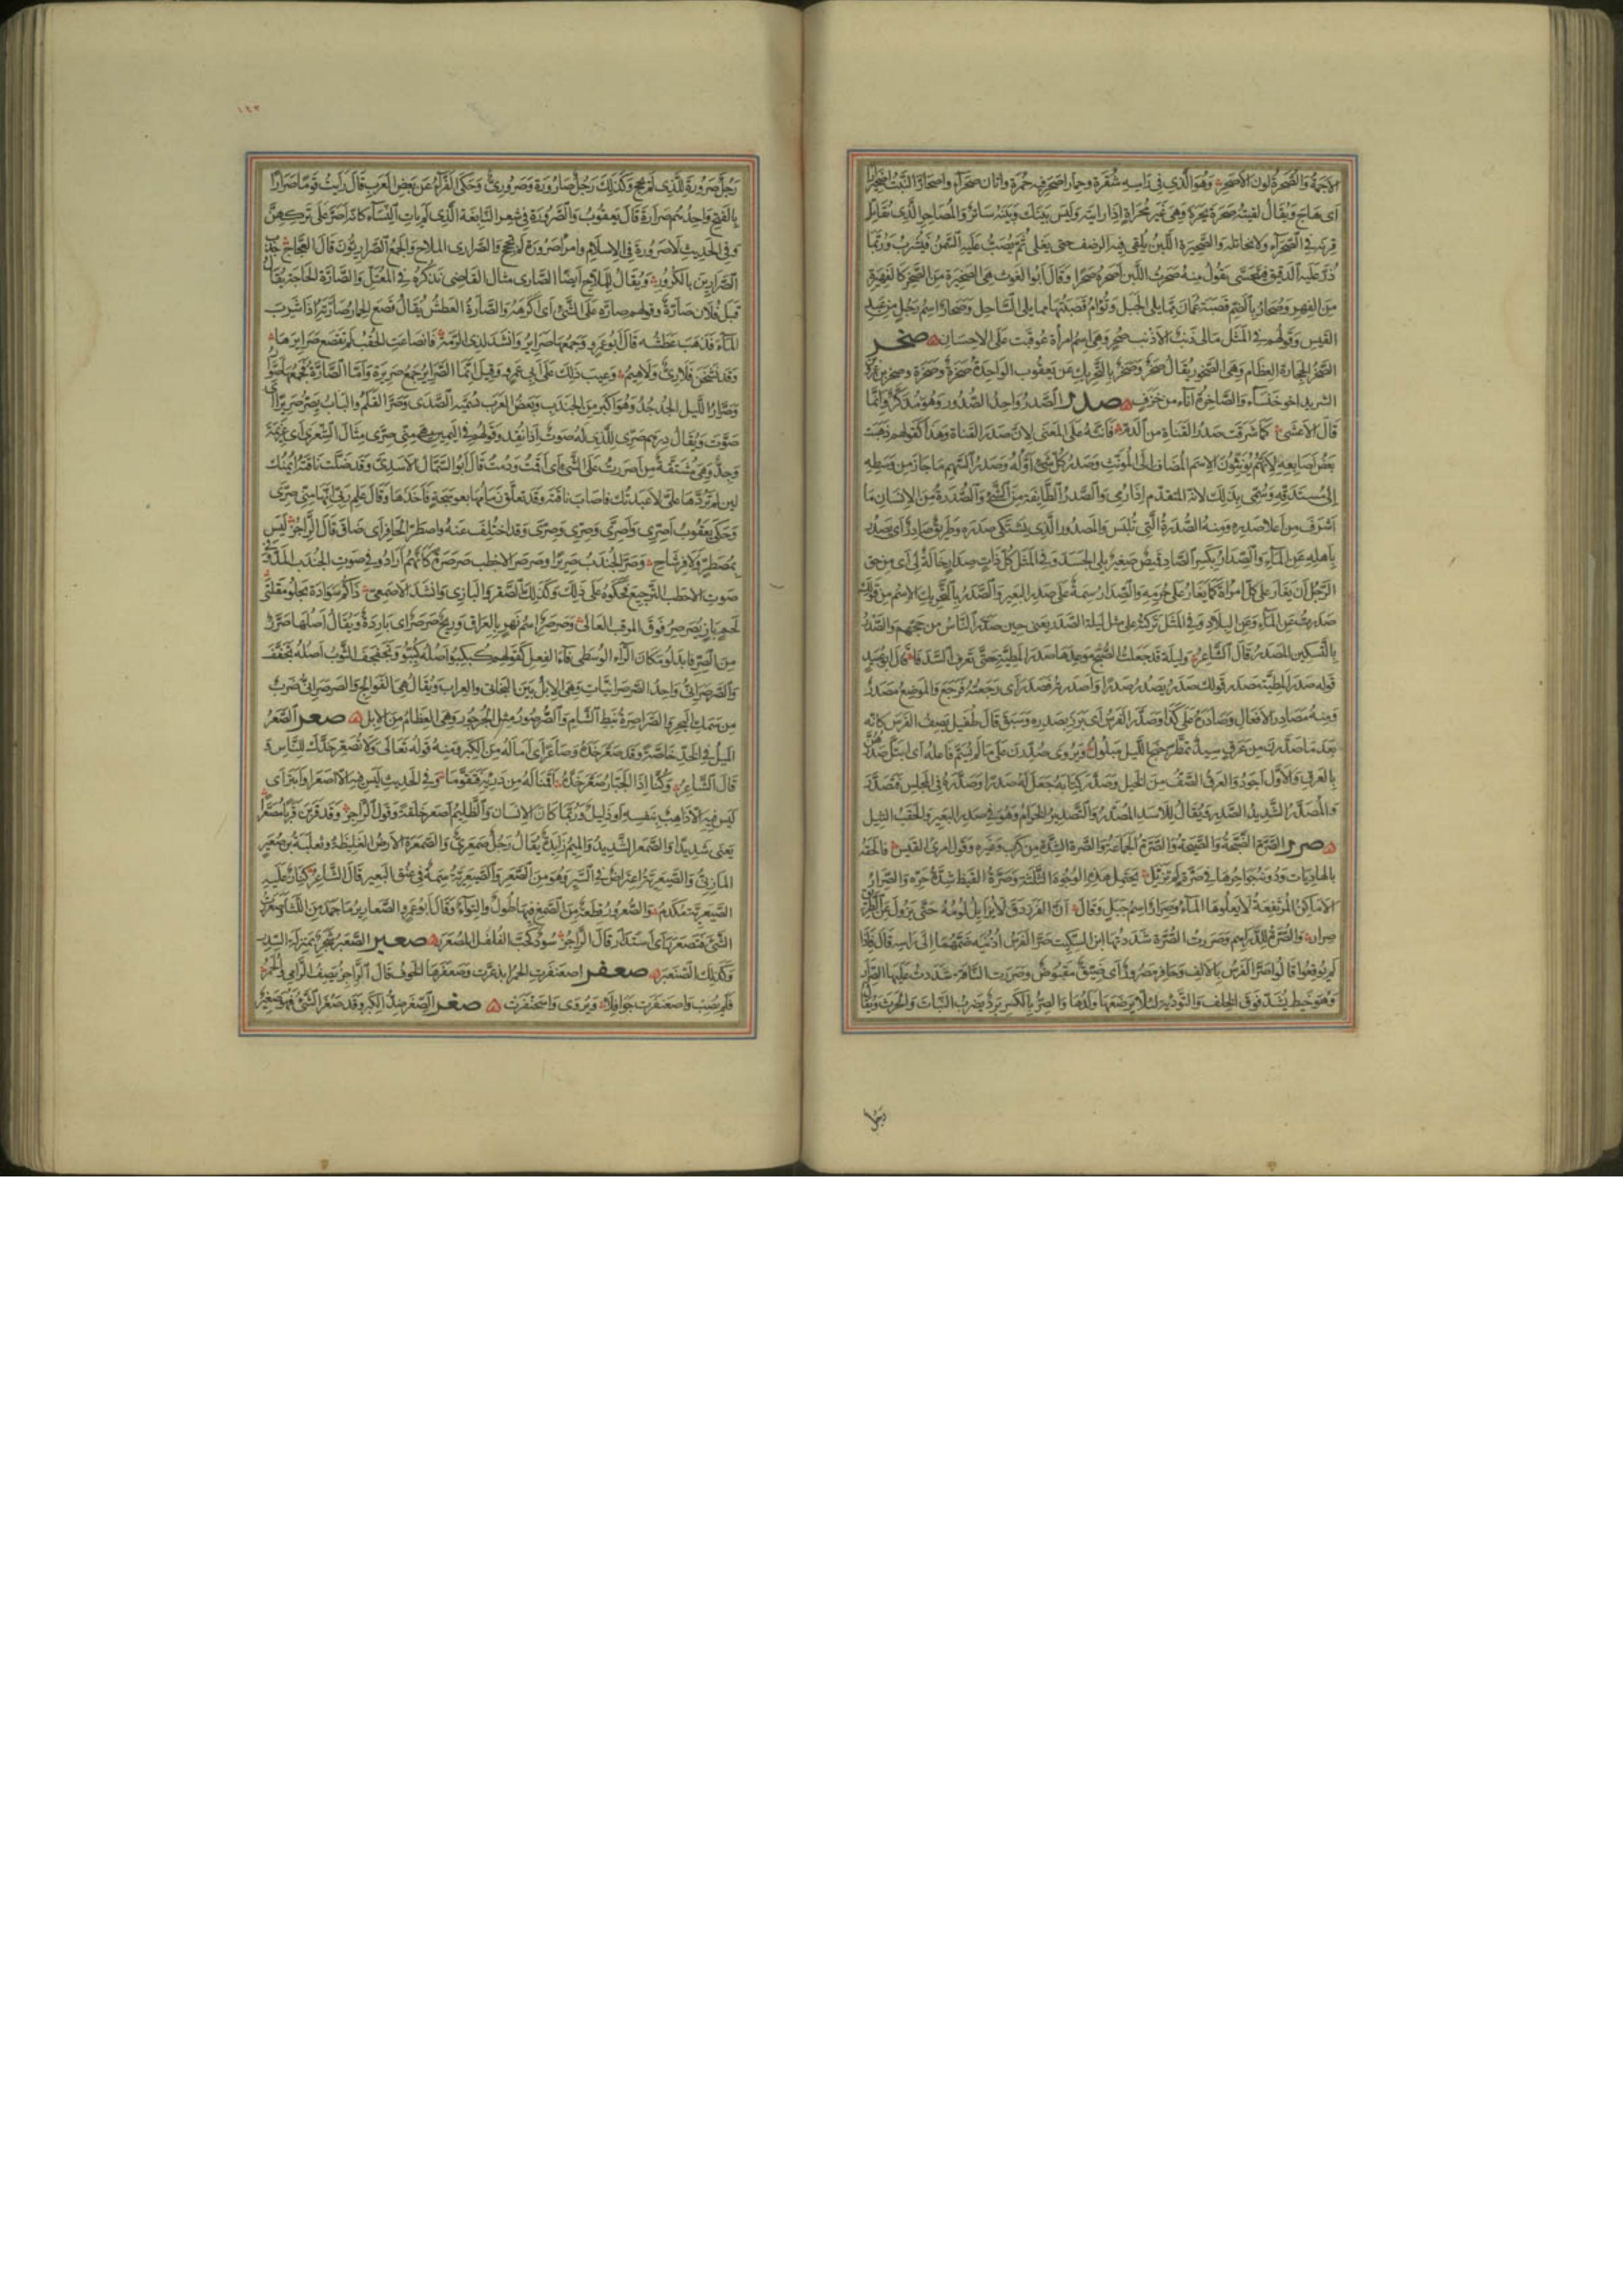 الأجمة والصحرة لون الأصحر وهو الذي في رأسه شقرة وحمار أصحر فيه حمرة وأتان صحراء واصحار النبت اصحيرارا
أي هاج ويقال لقيته صحرة بحرة وهي غير مجراة إذا رأيته وليس بينك وبينه ساتر والمصاحر الذي يقاتل
قرنه في الصحراء ولا يخاتله والصحيرة اللبن يلقى فيه الرضف حتى يغلي ثم يصب عليه السمن فيشرب وربما
ذر عليه الدقيق فيتحسى يقول منه صحرت اللبن أصحره صحرا وقال أبو الغوث هي الصحيرة من الصحر كالفهيرة
من الفهر وصحار بالضم قصبة عمان مما يلي الجبل وتوام قصبتها مما يلي الساحل وصحار اسم رجل من عبد
القيس وقولهم في المثل مالي ذنب إلا ذنب صحر وهي اسم امرأة عوقبت على الإحسان صخر
الصخر الحجارة العظام وهي الصخور يقال صخر وصخر بالتحريك عن يعقوب الواحدة صخرة وصخرة وصخر بن عمرو
الشريد أخو خنساء والصاخرة إناء من خزف صدر الصدر واحد الصدور وهو مذكر وإنما
قال الأعشى كما شرقت صدر القناة من الدم فأنثه على المعنى لأن صدر القناة وهذا كقولهم ذهبت
بعض أصابعه لأنهم يؤنثون الاسم المضاف إلى المؤنث وصدر كل شيء أوله وصدر السهم ما جاز من وسطه
إلى مستدقه وسمي بذلك لأنه المتقدم إذا رمي والصدر الطائفة من الشيء والصدرة من الإنسان ما
أشرف من أعلا صدره ومنه الصدرة التي تلبس والمصدور الذي يشتكي صدره وطريق صادر أي يصدر
بأهله عن الماء والصدار بكسر الصاد قميص صغير يلي الجسد وفي المثل كل ذات صدار خالة لي أي من حق
الرجل أن يغار على كل امرأة كما يغار على حرمه والصدار سمة على صدر البعير والصدر بالتحريك الاسم من قولك
صدرت عن الماء وعن البلاد وفي المثل تركته على مثل ليلة الصدر يعني حين صدر الناس من حجهم والصدر
بالتسكين المصدر قال الشاعر وليلة قد جعلت الصبح موعدها صدر المطية حتى تعرف السدفا قال أبو عبيد
قوله صدر المطية مصدر قولك صدر يصدر صدرا وأصدرته فصدر أي رجعته فرجع والموضع مصدر
ومنه مصادر الأفعال وصادره على كذا وصدر الفرس أي برز بصدره وسبق قال طفيل يصف الفرس كأنه
بعد ما صدرن من عرق سيد تمطر جنح الليل مبلول ويروى صدرن على ما لم يسم فاعله أي ابتل صدرهن
بالعرق والأول أجود والعرق الصف من الخيل وصدر كتابه جعل له صدرا وصدره في المجلس فتصدر
والمصدر الشديد الصدر ويقال للأسد المصدر والتصدير الحزام وهو في صدر البعير والحقب الثيل
صرر الصرة الضجة والصيحة والصرة الجماعة والصرة الشدة من كرب وغيره وقول امرئ القيس فألحقه
بالهاديات ودونه جواحرها في صرة لم تزيل يحتمل هذه الوجوه الثلثة وصرة القيظ شدة حره والصرار
الأماكن المرتفعة لا يعلوها الماء وصرار اسم جبل وقال إن الفرزدق لا يزايل لومه حتى يزول عن الطريق
صرار والصرة للدراهم وصررت الصرة شددتها ابن السكيت صر الفرس أذنيه ضمهما إلى رأسه قال فإذا
لم يوقعوا قالوا أصر الفرس بالألف وحافر مصرور أي ضيق مقبوض وصررت الناقة شددت عليها الصرار
وهو خيط يشد فوق الخلف والتودية لئلا يرضعها ولدها والصر بالكسر برد يضرب النبات والحرث ويقال
رجل
١٩٣
رجل صرورة للذي لم يحج وكذلك رجل صارورة وصروري وحكى الفراء عن بعض العرب قال رأيت قوما صرارا
بالفتح واحدهم صرارة قال يعقوب والصرورة في شعر النابغة الذي لم يأت النساء كأنه أصر على تركهن
وفي الحديث لا صرورة في الإسلام وامرأة صرورة لم تحج والصراري الملاح والجمع الصراريون قال العجاج جذب
الصراريين بالكرور ويقال للملاح أيضا الصاري مثال القاضي نذكره في المعتل والصارة الحاجة يقال
قبل فلان صارة وقولهم صاره على الشيء أي أكرهه والصارة العطش يقال قصع الحمار صارته إذا شرب
الماء فذهب عطشه قال أبو عمرو وجمعها صرائر وأنشد لذي الرمة فانصاعت الحقب لم تقصع صرائرها
وقد نشحن فلا ري ولا هيم وعيب ذلك على أبي عمرو وقيل إنما الصرائر جمع صريرة وأما الصارة فجمعها صوار
وصرار الليل الجدجد وهو أكبر من الجندب وبعض العرب تسميه الصدى وصر القلم والباب يصر صريرا أي
صوت ويقال درهم صري للذي له صوت إذا نقد وقولهم في اليمين هي مني صرى مثال الشعرى أي عزيمة
وجد وهي مشتقة من أصررت على الشيء أي أقمت ودمت قال أبو السمال الأسدي وقد ضلت ناقته أيمنك
لئن لم تردها علي لا عبدتك فأصاب ناقته وقد تعلق زمامها بعوسجة فأخذها وقال علم ربي أنها مني صرى
وحكى يعقوب أصري وأصرى وصري وصرى وقد اختلف عنه واصطر الحافر أي ضاق قال الراجز ليس
بمصطر ولا فرشاح وصر الجندب صريرا وصرصر الأخطب صرصرة كأنهم أرادوا في صوت الجندب المد وفي
صوت الأخطب الترجيع فحكوه على ذلك وكذلك الصقر والبازي وأنشد الأصمعي ذاكم سوادة يجلو مقلتي
لحم باز يصرصر فوق المرقب العالي وصرصر اسم نهر بالعراق وريح صرصر أي باردة ويقال أصلها صرر
من الصر فابدلوا مكان الراء الوسطى فاء الفعل كقولهم كبكبوا أصله كببوا وتجفجف الثوب أصله تجفف
والصرصراني واحد الصرصرانيات وهي الإبل بين البخاتي والعراب ويقال هي الفوالج والصرصراني ضرب
من سمك البحر والصراصرة نبط الشام والصرصور مثل الجرجور وهي العظام من الإبل صعر الصعر
الميل في الخد خاصة وقد صعر خده وصاعر أي أماله من الكبر ومنه قوله تعالى ولا تصعر خدك للناس و
قال الشاعر وكنا إذا الجبار صعر خده أقمنا له من درئه فتقوما وفي الحديث ليس فيه إلا أصعر أو أبتر أي
ليس فيه إلا ذاهب بنفسه أو ذليل وربما كان الإنسان والظليم أصعر خلقة وقول الراجز وقد قربن قربا مصعرا
يعني شديدا والصمعر الشديد والميم زايدة يقال رجل صمعري والصمعرة الأرض الغليظة وثعلبة بن صعير
المازني والصيعرية اعتراض في السير وهو من الصعر والصيعرية سمة في عنق البعير قال الشاعر كناز عليه
الصيعرية مكدم والصعرور قطعة من الصمغ فيها طول والتواء وقال أبو عمرو الصعارير ما جمد من اللثا وصعررت
الشيء فتصعرر أي استدار قال الراجز سود كحب الفلفل المصعرر صعبر الصعبر شجر بمنزلة السدر
وكذلك الصنعبر صعفر اصعنفرت الحمر ابذعرت وصعفرها الخوف قال الراجز يصف الرامي والحمر
فلم يصب واصعنفرت جوافلا ويروى واسحنفرت صغر الصغر ضد الكبر وقد صغر الشيء فهو صغير